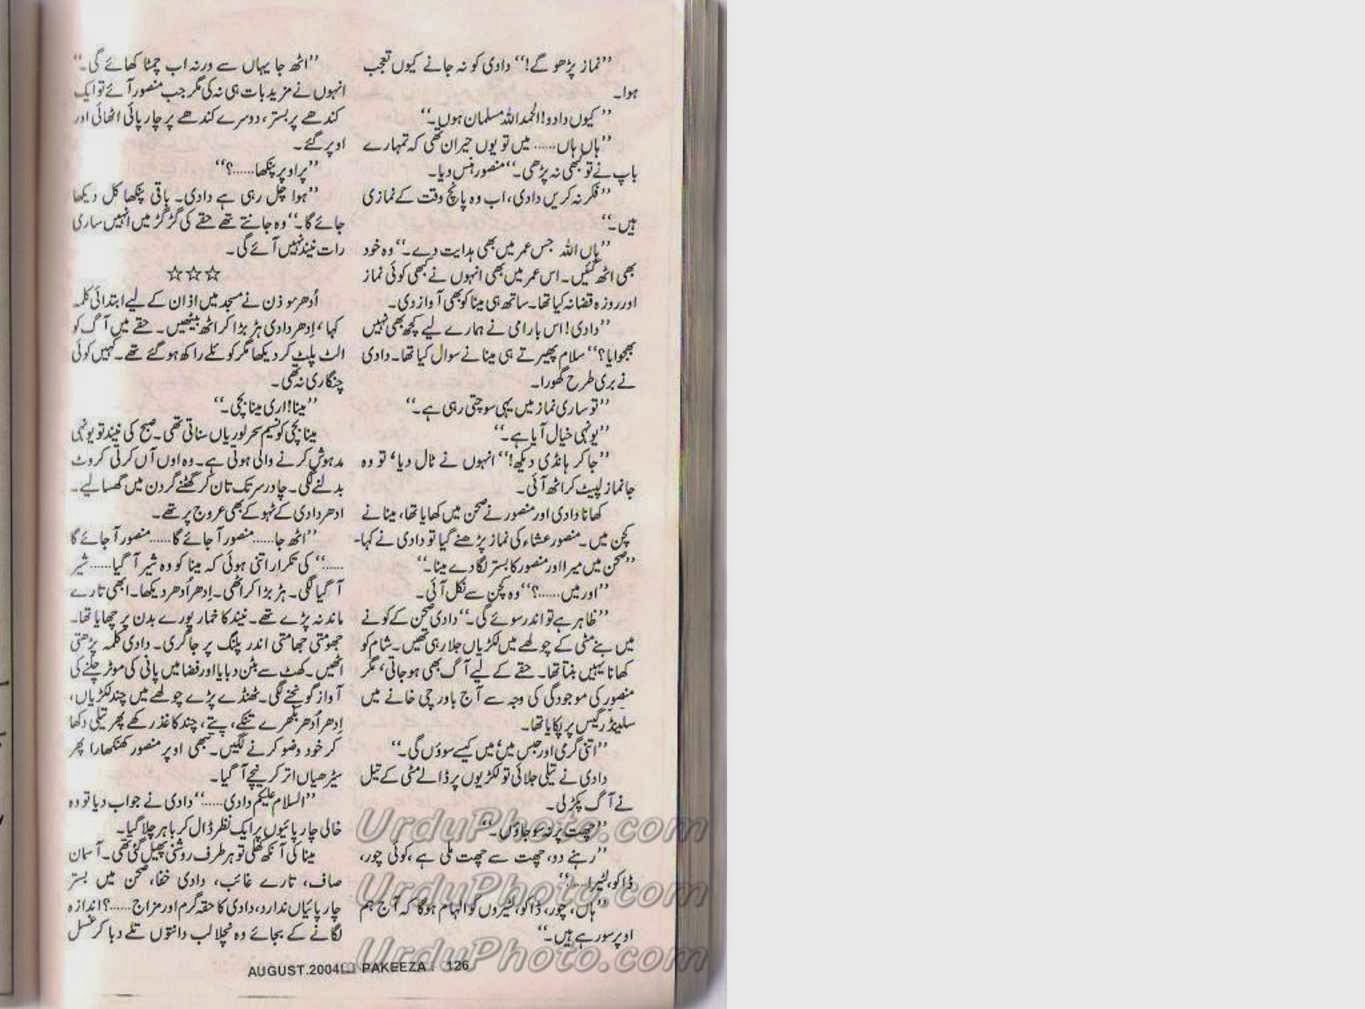 ”نماز پڑھو گے!“ دادی کو نہ جانے کیوں تعجب
ہوا۔
”کیوں دادو! الحمد اللہ مسلمان ہوں۔“
”ہاں ہاں...... میں تو یوں حیران تھی کہ تمہارے
باپ نے تو کبھی نہ پڑھی۔“ منصور ہنس دیا۔
”فکر نہ کریں دادی، اب وہ پانچ وقت کے نمازی
ہیں۔“
”ہاں اللہ جس عمر میں بھی ہدایت دے۔“ وہ خود
بھی اٹھ گئیں۔ اس عمر میں بھی انہوں نے کبھی کوئی نماز
اور روزہ قضا نہ کیا تھا۔ ساتھ ہی مینا کو بھی آواز دی۔
”دادی! اس بار امی نے ہمارے لیے کچھ بھی نہیں
بھجوایا؟“ سلام پھیرتے ہی مینا نے سوال کیا تھا۔ دادی
نے بری طرح گھورا۔
”تو ساری نماز میں یہی سوچتی رہی ہے۔“
”یونہی خیال آیا ہے۔“
”جا کر ہانڈی دیکھ!“ انہوں نے ٹال دیا، تو وہ
جانماز لپیٹ کر اٹھ آئی۔
کھانا دادی اور منصور نے صحن میں کھایا تھا، مینا نے
کچن میں۔ منصور عشاء کی نماز پڑھنے گیا تو دادی نے کہا۔
”صحن میں میرا اور منصور کا بستر لگا دے مینا۔“
”اور میں......؟“ وہ کچن سے نکل آئی۔
”ظاہر ہے تو اندر سوئے گی۔“ دادی صحن کے کونے
میں بنے مٹی کے چولھے میں لکڑیاں جلا رہی تھیں۔ شام کو
کھانا یہیں بنتا تھا۔ حقے کے لیے آگ بھی ہو جاتی، مگر
منصور کی موجودگی کی وجہ سے آج باورچی خانے میں
سلینڈر گیس پر پکایا تھا۔
”اتنی گرمی اور حبس میں، میں کیسے سوؤں گی۔“
دادی نے تیلی جلائی تو لکڑیوں پر ڈالے مٹی کے تیل
نے آگ پکڑ لی۔
”چھت پر نہ سو جاؤں۔“
”رہنے دو، چھت سے چھت ملی ہے، کوئی چور،
ڈاکو، لٹیرا......“
”ہاں، چور، ڈاکو، لٹیروں کو الہام ہوگا کہ آج ہم
اوپر سو رہے ہیں۔“
”اٹھ جا یہاں سے ورنہ اب چمٹا کھائے گی۔“
انہوں نے مزید بات ہی نہ کی مگر جب منصور آئے تو ایک
کندھے پر بستر، دوسرے کندھے پر چارپائی اٹھائی اور
اوپر گئے۔
”پر اوپر پنکھا......؟“
”ہوا چل رہی ہے دادی۔ باقی پنکھا کل دیکھا
جائے گا۔“ وہ جانتے تھے حقے کی گڑ گڑ میں انہیں ساری
رات نیند نہیں آئے گی۔
☆☆☆
اُدھر موذن نے مسجد میں اذان کے لیے ابتدائی کلمہ
کہا، اِدھر دادی ہڑبڑا کر اٹھ بیٹھیں۔ حقے میں آگ کو
الٹ پلٹ کر دیکھا مگر کوئلے راکھ ہو گئے تھے۔ کہیں کوئی
چنگاری نہ تھی۔
”مینا! اری مینا بچی۔“
مینا بچی کو نسیم سحر لوریاں سناتی تھی۔ صبح کی نیند تو یونہی
مدہوش کرنے والی ہوتی ہے۔ وہ اوں آں کرتی کروٹ
بدلنے لگی۔ چادر سر تک تان کر گھٹنے گردن میں گھسا لیے۔
ادھر دادی کے ٹہوکے بھی عروج پر تھے۔
”اٹھ جا...... منصور آ جائے گا...... منصور آ جائے گا
......“ کی تکرار اتنی ہوئی کہ مینا کو وہ شیر آ گیا...... شیر
آ گیا لگی۔ ہڑبڑا کر اٹھی۔ اِدھر اُدھر دیکھا۔ ابھی تارے
ماند نہ پڑے تھے۔ نیند کا خمار پورے بدن پر چھایا تھا۔
جھومتی جھامتی اندر پلنگ پر جا گری۔ دادی کلمہ پڑھتی
اٹھیں۔ کھٹ سے بٹن دبایا اور فضا میں پانی کی موٹر چلنے کی
آواز گونجنے لگی۔ ٹھنڈے پڑے چولھے میں چند لکڑیاں،
اِدھر اُدھر بکھرے تنکے، پتے، چند کاغذ رکھے پھر تیلی دکھا
کر خود وضو کرنے لگیں۔ تبھی اوپر منصور کھنکھارا پھر
سیڑھیاں اتر کر نیچے آ گیا۔
”السلام علیکم دادی......“ دادی نے جواب دیا تو وہ
خالی چارپائیوں پر ایک نظر ڈال کر باہر چلا گیا۔
مینا کی آنکھ کھلی تو ہر طرف روشنی پھیل گئی تھی۔ آسمان
صاف، تارے غائب، دادی خفا، صحن میں بستر
چارپائیاں ندارد، دادی کا حقہ گرم اور مزاج......؟ اندازہ
لگانے کے بجائے وہ نچلا لب دانتوں تلے دبا کر غسل
AUGUST.2004 PAKEEZA 126
UrduPhoto.com
UrduPhoto.com
UrduPhoto.com